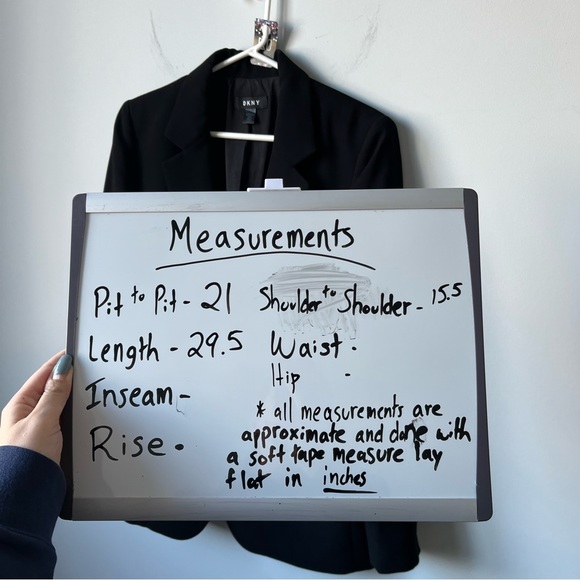 DKNY
Measurements
Pit to Pit - 21 Shoulder to Shoulder - 15.5
Length - 29.5 Waist -
Hip -
Inseam -
Rise -
* all measurements are
approximate and done with
a soft tape measure lay
flat in inches